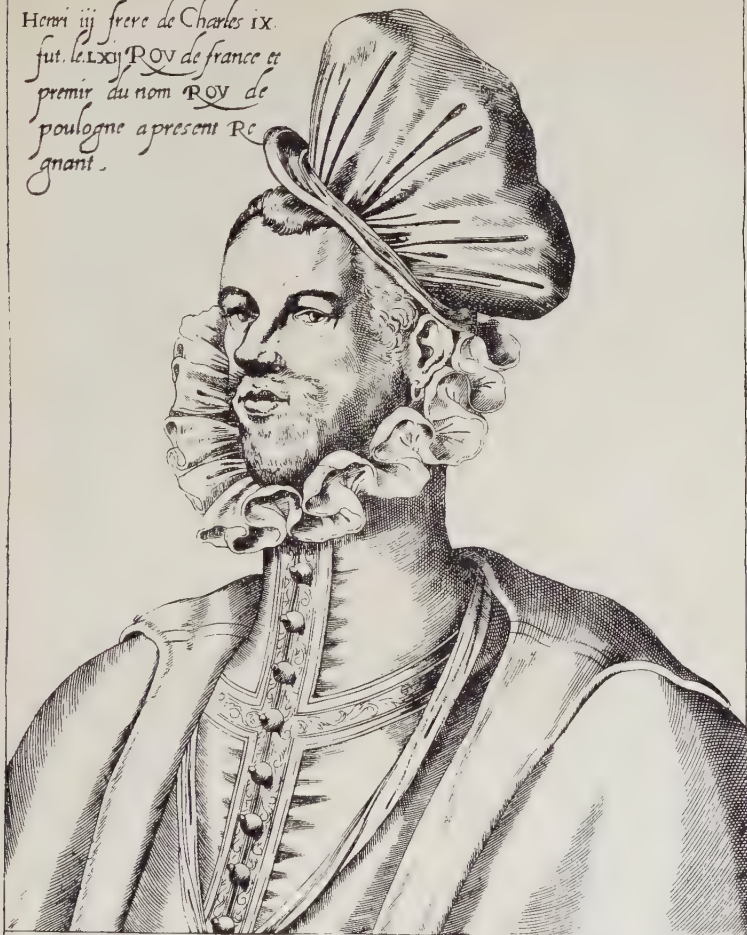 Henri iij frere de Charles IX.
fut. le. LXIJ ROY de france et
premir du nom ROY de
poulogne apresent Re
gnant.